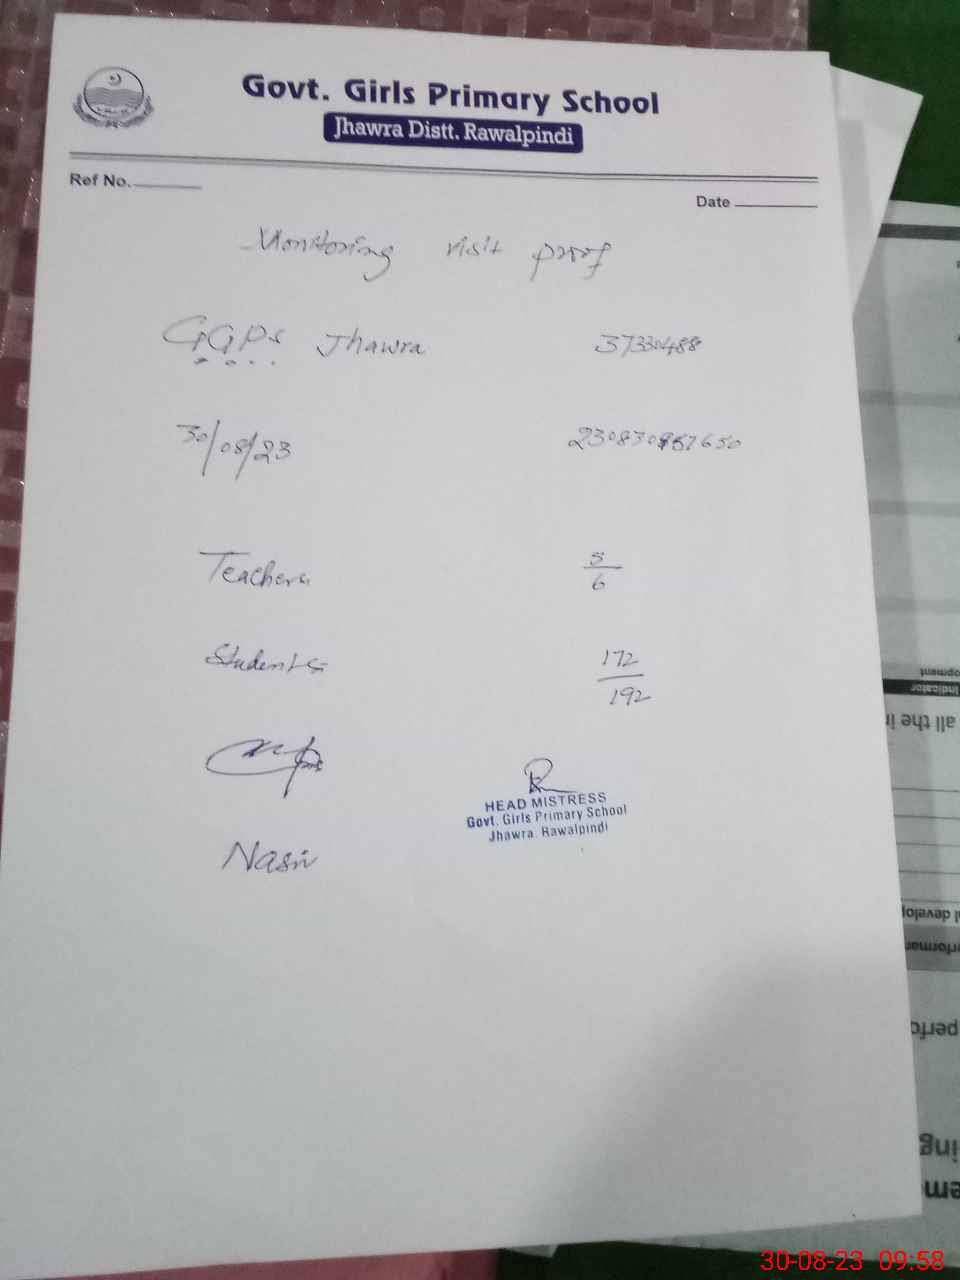 Govt. Girls Primary School
Jhawra Distt. Rawalpindi
Ref No.
Date
Monitoring visit proof
G.G.P.S Jhawra 37330488
30/08/23
Teachers 5/6
Students 172/192
HEAD MISTRESS
Govt. Girls Primary School
Jhawra. Rawalpindi
opment
Indicator
all the in
l develop
rforman
perfo
ing
em
30-08-23 09:58